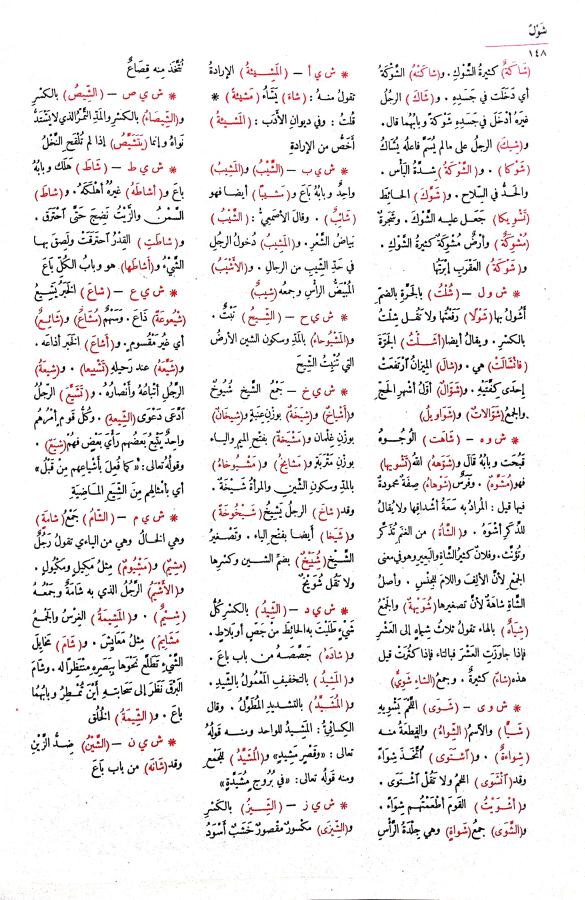 شَوْلٌ
١٤٨
(شَاكَةٌ) كثيرةُ الشَّوْكِ . و(شاكَتْهُ) الشَّوْكَةُ
أي دَخَلَت في جَسَدِهِ . و(شَاكَ) الرجلُ
غيرَهُ أدْخَلَ في جَسَدِهِ شَوْكَةً وبابُهما قال .
و(شِيكَ) الرجلُ على مالم يُسَمَّ فاعلُه يُشَاكُ
(شَوْكًا) . و (الشَّوْكَةُ) شِدَّةُ البَأْسِ .
والحَدُّ في السِّلاح . و(شَوَّكَ) الحائِطَ
(تَشْوِيكًا) جَعَل عليه الشَّوْكَ . وشَجَرةٌ
(مُشْوِكَةٌ) وأرْضٌ مُشْوِكَةٌ كثيرةُ الشَّوْكِ .
و(شَوْكَةُ) العَقْرَبِ إبْرَتُها
* ش و ل – (شُلْتُ) بالجَرَّةِ بالضم
أَشُولُ بها (شَوْلًا) رَفَعْتُها ولا تَقُل شِلْتُ
بالكسر . ويقالُ أيضا (أَشَلْتُ) الجَرَّةَ
(فانْشَالَتْ) هي . و(شالَ) المِيزانُ ارْتَفَعَتْ
إحْدَى كِفَّتَيْهِ . و(شَوَّالٌ) أوَّلُ أشْهُرِ الحَجِّ
والجمعُ (شَوَّالاتٌ) و(شَوَاوِيلُ)
* ش و ه – (شَاهَت) الوُجُـوهُ
قَبُحَت وبابُهُ قالَ و(شَوَّهَهُ) اللهُ (تَشْوِيهًا)
فهو (مُشَوَّهٌ) . وفَرَسٌ (شَوْهاءُ) صِفَةٌ محمودةٌ
فيها قيل : المُرادُ به سَعَةُ أشْداقِها ولا يُقالُ
للذَّكَرِ أَشْوَهُ . و(الشَّاةُ) من الغَنَمِ تُذَكَّر
وتُؤَنَّث . وفلانٌ كثيرُ الشَّاةِ والبَعيرِ وهو في معنى
الجمعِ لأنَّ الأَلِفَ واللامَ لِلْجِنْسِ . وأصلُ
الشَّاةِ شَاهَةٌ لأنَّ تصغيرَها (شُوَيْهَةٌ) والجَمْعُ
(شِيَاهٌ) بالهاء تقولُ ثلاثُ شِياهٍ إلى العَشْرِ
فإذا جاوَزَتِ العَشْرَ فبالتاء فإذا كَثُرَتْ قيل
هذه (شَاءٌ) كثيرةٌ . وجمعُ (الشاءِ شَوِيٌّ)
* ش و ى – (شَـوَى) اللَّحْمَ يَشْوِيهِ
(شَيًّا) والاسمُ (الشِّوَاءُ) والقِطْعَةُ منه
(شِوَاءةٌ) . و(اشْـتَوَى) اتَّخَـذَ شِوَاءً
وقد (انْشَوَى) اللحمُ ولا تَقُل اشْتَوَى .
و(أَشْوَيْتُ) القومَ أطْعَمْتُهم شِوَاءً .
و(الشَّوَى) جمعُ (شَوَاةٍ) وهي جِلْدَةُ الرَّأْسِ
* ش ي أ – (المَشِـيئَةُ) الإرادةُ
تقولُ منـهُ : (شاءَ) يَشَاءُ (مَشِيئَةً) *
قلتُ : وفي ديوانِ الأَدَبِ : (المَشِيئَةُ)
أخَصُّ من الإرادةِ
* ش ي ب – (الشَّيْبُ) و(المَشِيبُ)
واحدٌ وبابُهُ باعَ و(مَشِيبًا) أيضا فهو
(شائِبٌ) . وقالَ الأصمَعِيُّ : (الشَّيْبُ)
بَياضُ الشَّعْرِ . و(المَشِيبُ) دُخولُ الرجُلِ
في حَدِّ الشَّيبِ من الرِجالِ . و(الأَشْيَبُ)
المُبْيَضُّ الرأسِ وجمعُهُ (شِيبٌ)
* ش ي ح – (الشِّيحُ) نَبْتٌ .
و(المَشْيُوحاءُ) بالمدّ وسكونِ الشين الأرضُ
التي تُنْبِتُ الشِّيحَ
* ش ي خ – جَمْعُ الشَّيخِ شُيُوخٌ
و(أَشْياخٌ) و(شِيَخَةٌ) بوزنِ عِنَبَةٍ و(شِيخانٌ)
بوزنِ غِلْمانٍ و(مَشْيَخَةٌ) بفتح الميم والياء
بوزنِ مَتْرَبَةٍ و(مَشَايخُ) و(مَشْيُوخاءُ)
بالمدّ وسكون الشين والمرأةُ شَيْخَةٌ .
وقد (شَاخَ) الرجلُ يَشِيخُ (شَيْخُوخَةً)
و(شَيَخًا) أيضا بفتح الياء . وتَصْغيرُ
الشَّيخِ (شُيَيْخٌ) بضمِّ الشـين وكسرِها
ولا تَقُل شُوَيْخٌ
* ش ي د – (الشِّيدُ) بالكسر كُلُّ
شيءٍ طَلَيْتَ به الحائطَ من جَصٍّ أو بَلَاطٍ .
و(شَادَهُ) جَصَّصَهُ من باب باعَ .
و(المَشِيدُ) بالتخفيفِ المَعْمُولُ بالشِّيدِ .
و(المُشَيَّدُ) بالتشديدِ المُطَوَّلُ . وقال
الكِسائيُّ : المَشِيدُ للواحدِ ومنه قولُهُ
تعالى : «وقَصْرٍ مَشِيدٍ» و(المُشَيَّدُ) لِلْجَمْعِ
ومنه قولُهُ تعالى : «في بُرُوجٍ مُشَيَّدَةٍ»
* ش ي ز – (الشِّـيزُ) بالكَسْرِ
و(الشِّيزَى) مكسورٌ مقصورٌ خَشَبٌ أسْوَدُ
تُتَّخَذُ مِنه قِصَاعٌ
* ش ي ص – (الشِّيصُ) بالكَسْرِ
و(الشِّيصَاءُ) بالكسر والمَدّ التَّمْرُ الذي لا يَشْتَدُّ
نَواهُ وإنما (يَتَشَيَّصُ) إذا لم تُلْقَحِ النَّخْلُ
* ش ي ط – (شاطَ) هَلَكَ وبابُهُ
باعَ و(أشاطَهُ) غيرُه أهْلَكَهُ . و(شاطَ)
السَّمْنُ والزَّيْتُ نَضِجَ حَتَّى احْتَرَقَ .
و(شَاطَتِ) القِدْرُ احتَرَقَتْ ولَصِقَ بهـا
الشَّيْءُ و(أشاطَها) هو وبابُ الكُلِّ باعَ
* ش ي ع – (شاعَ) الخَبَرُ يَشِيعُ
(شَيْعُوعَةً) ذَاعَ . وسَهْمٌ (مُشَاعٌ) و(شائِعٌ)
أي غيرُ مَقْسومٍ . و(أشاعَ) الخَبَرَ أذاعَه .
و(شَيَّعَهُ) عندَ رَحيلِهِ (تَشْيِيعًا) . و(شِيعَةُ)
الرَّجُلِ أتباعُهُ وأنْصارُه . و(تَشَيَّعَ) الرجُلُ
ادَّعَى دَعْوَى (الشِّيعَةِ) . وكلُّ قومٍ أمْرُهُم
واحدٌ يَتْبَعُ بعضُهم رَأْيَ بَعْضٍ فهم (شِيَعٌ) .
وقولُه تعالى : «كما فُعِلَ بأَشْياعِهِم مِنْ قَبْلُ»
أي بأمثالِهم مِنَ الشِّيَعِ المـاضيةِ
* ش ي م – (الشَّامُ) جمعُ (شَامَةٍ)
وهي الخَالُ وهي من اليَاءِي تقولُ رَجُلٌ
(مَشِيمٌ) و(مَشْيُومٌ) مِثْلُ مَكِيلٍ ومَكْيُولٍ .
و(الأَشْيَمُ) الرَّجُلُ الذي به شَامَةٌ وجمعُـهُ
(شِـيمٌ) . و(المَشِيمَةُ) الغِرْسُ والجَمْعُ
(مَشايِمُ) مثلُ مَعَايِشَ . و(شَامَ) مَخايِلَ
الشَّيْءِ تَطَلَّعَ نَحْوَها بِبَصَرِهِ مُنتَظِرًا له . وشَامَ
البَرْقَ نَظَرَ إلى سَحابتِهِ أيْنَ تُمْطِرُ وبابُهما
باعَ . و(الشِّيمَةُ) الخُلُقُ
* ش ي ن – (الشَّيْنُ) ضِدُّ الزَّيْنِ
وقد (شَانَهُ) من باب باعَ